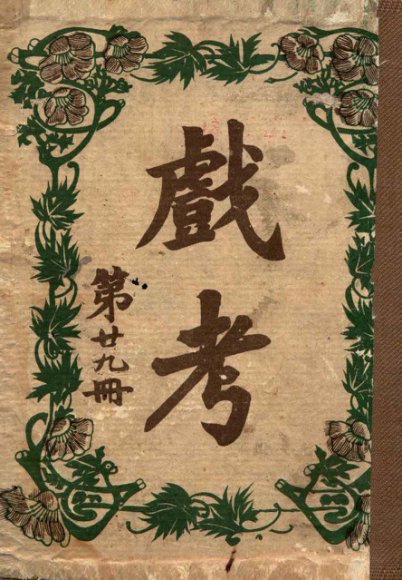 戲考
第廿九冊